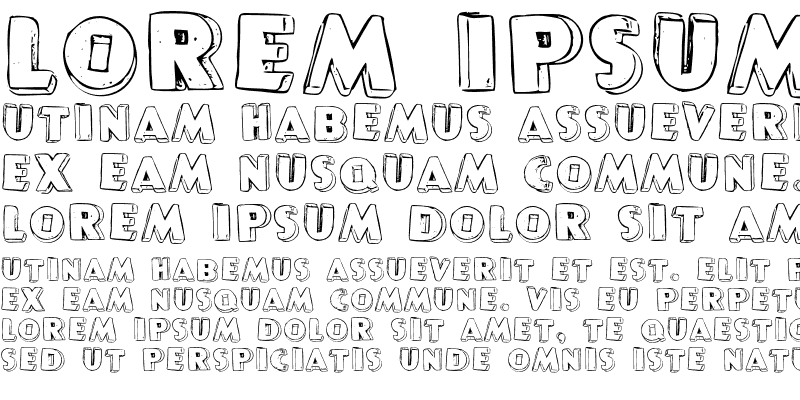 LOREM IPSUM
UTINAM HABEMUS ASSUEVERI
EX EAM NUSQUAM COMMUNE.
LOREM IPSUM DOLOR SIT AM
UTINAM HABEMUS ASSUEVERIT ET EST. ELIT P
EX EAM NUSQUAM COMMUNE. VIS EU PERPETU
LOREM IPSUM DOLOR SIT AMET, TE QUAESTIO
SED UT PERSPICIATIS UNDE OMNIS ISTE NATU